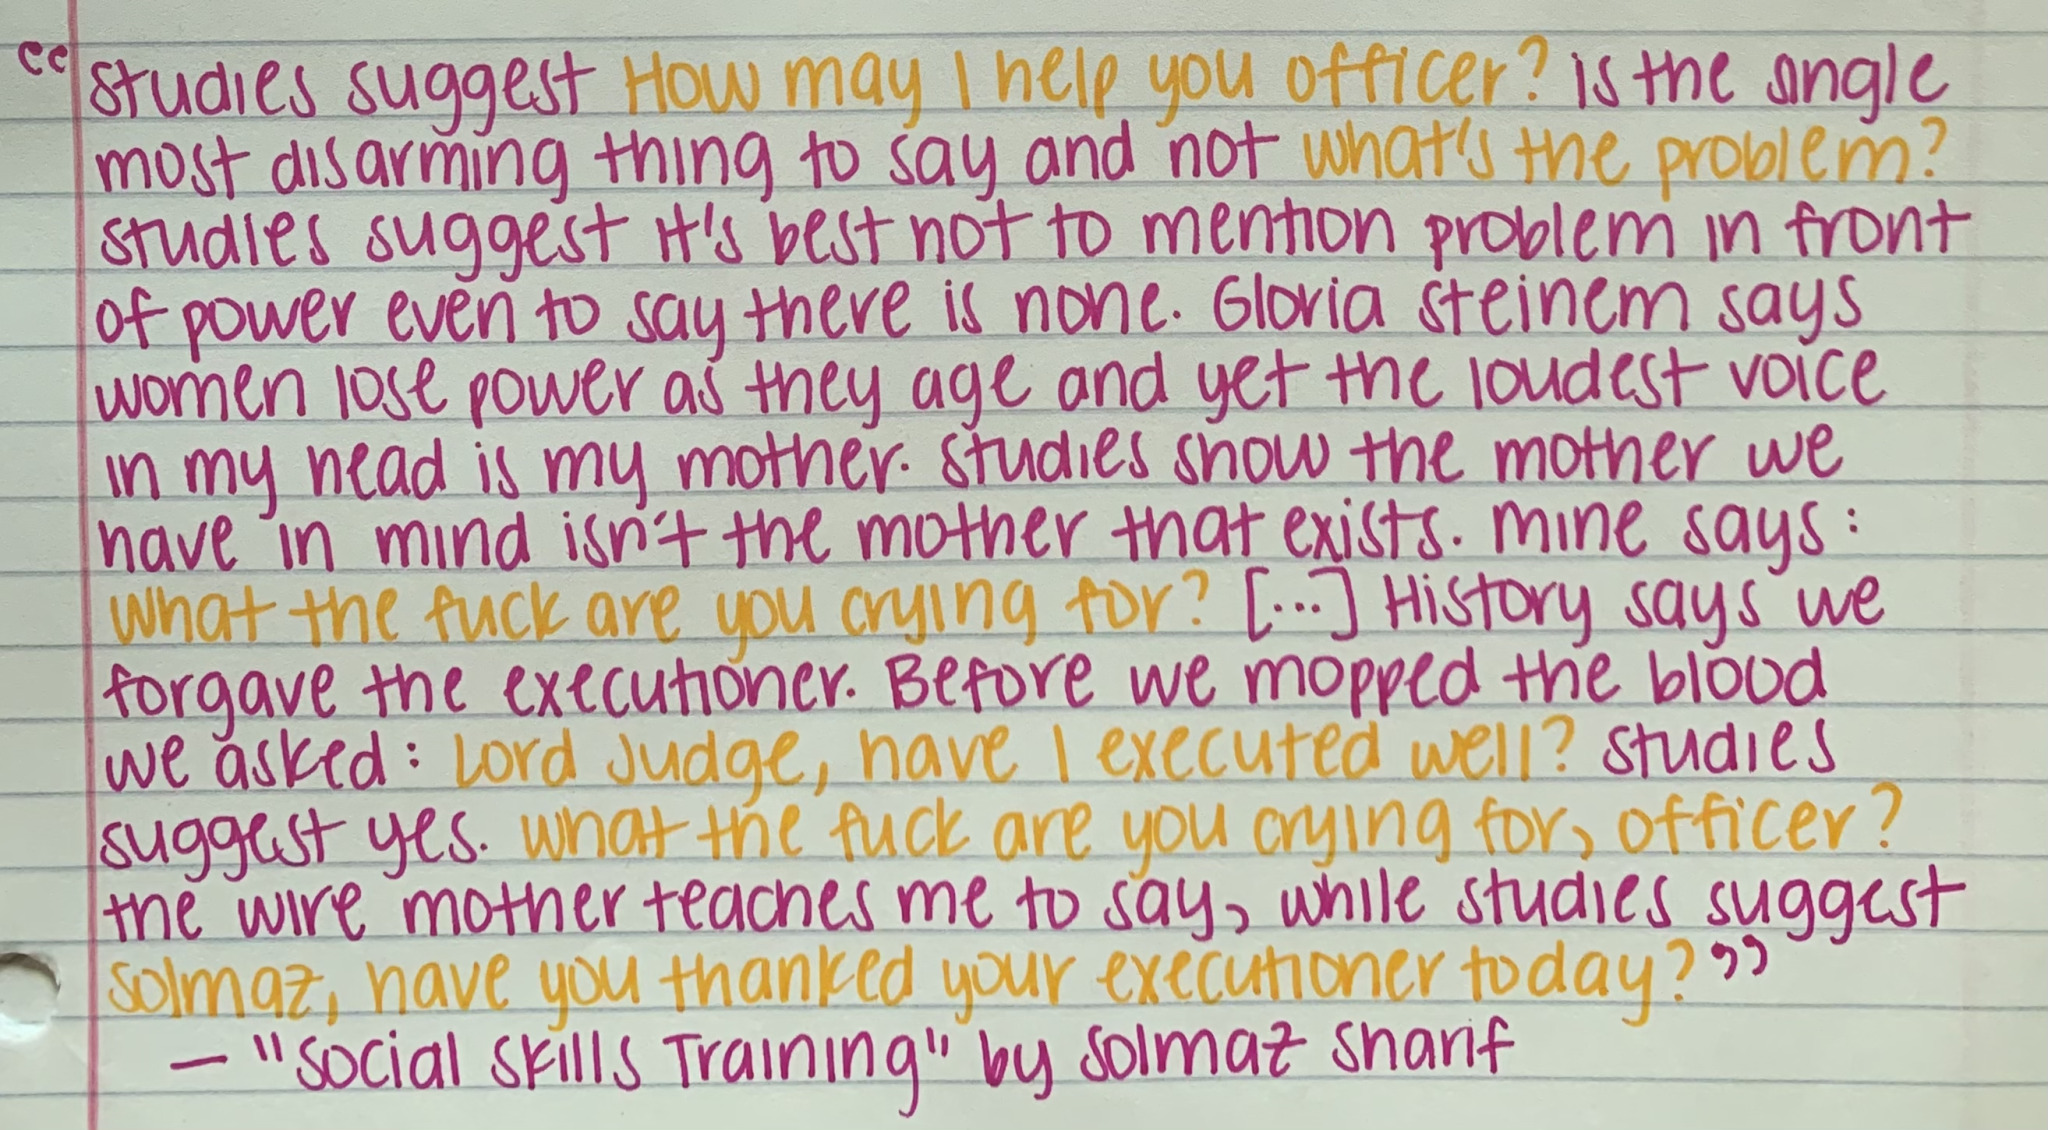 "Studies suggest How may I help you officer? is the single
most disarming thing to say and not what's the problem?
Studies suggest it's best not to mention problem in front
of power even to say there is none. Gloria Steinem says
women lose power as they age and yet the loudest voice
in my head is my mother. Studies show the mother we
have in mind isn't the mother that exists. Mine says:
What the fuck are you crying for? [...] History says we
forgave the executioner. Before we mopped the blood
we asked: Lord Judge, have I executed well? Studies
suggest yes. What the fuck are you crying for, officer?
the wire mother teaches me to say, while studies suggest
Solmaz, have you thanked your executioner today?"
— "Social Skills Training" by Solmaz Sharif